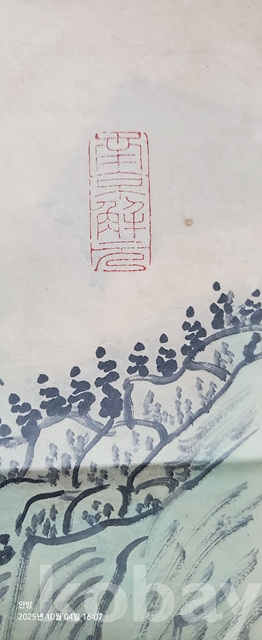 南京解元
안방
2025년 10월 04일 16:07
kobay